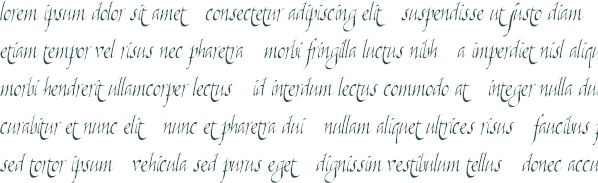 lorem ipsum dolor sit amet consectetur adipiscing elit suspendisse ut justo diam
etiam tempor vel risus nec pharetra morbi fringilla luctus nibh a imperdiet nisl
morbi hendrerit ullamcorper lectus id interdum lectus commodo at integer nulla
curabitur et nunc elit nunc et pharetra dui nullam aliquet ultrices risus faucibus
sed tortor ipsum vehicula sed purus eget dignissim vestibulum tellus donec